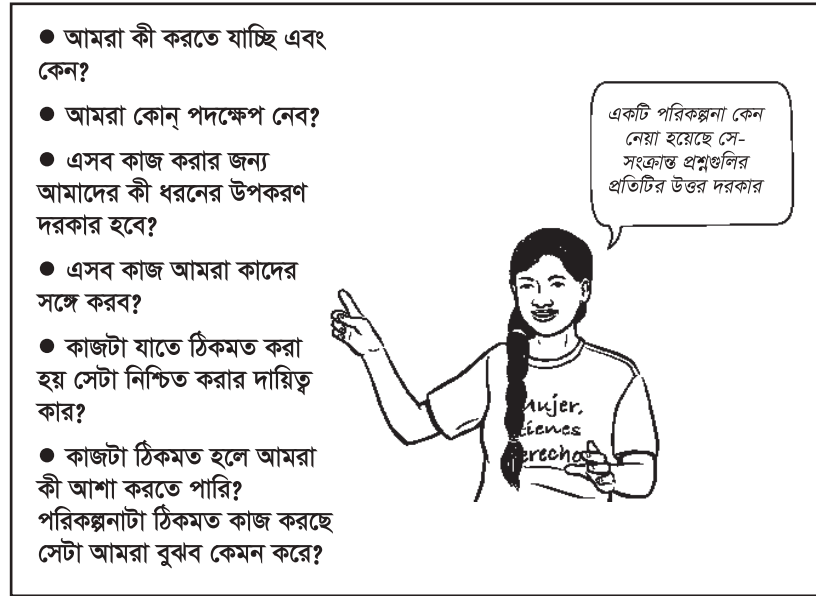 ● আমরা কী করতে যাচ্ছি এবং
কেন?
● আমরা কোন্ পদক্ষেপ নেব?
● এসব কাজ করার জন্য
আমাদের কী ধরনের উপকরণ
দরকার হবে?
● এসব কাজ আমরা কাদের
সঙ্গে করব?
● কাজটা যাতে ঠিকমত করা
হয় সেটা নিশ্চিত করার দায়িত্ব
কার?
● কাজটা ঠিকমত হলে আমরা
কী আশা করতে পারি?
পরিকল্পনাটা ঠিকমত কাজ করছে
সেটা আমরা বুঝব কেমন করে?
একটি পরিকল্পনা কেন
নেয়া হয়েছে সে-
সংক্রান্ত প্রশ্নগুলির
প্রতিটির উত্তর দরকার
Mujer,
tienes
derecho